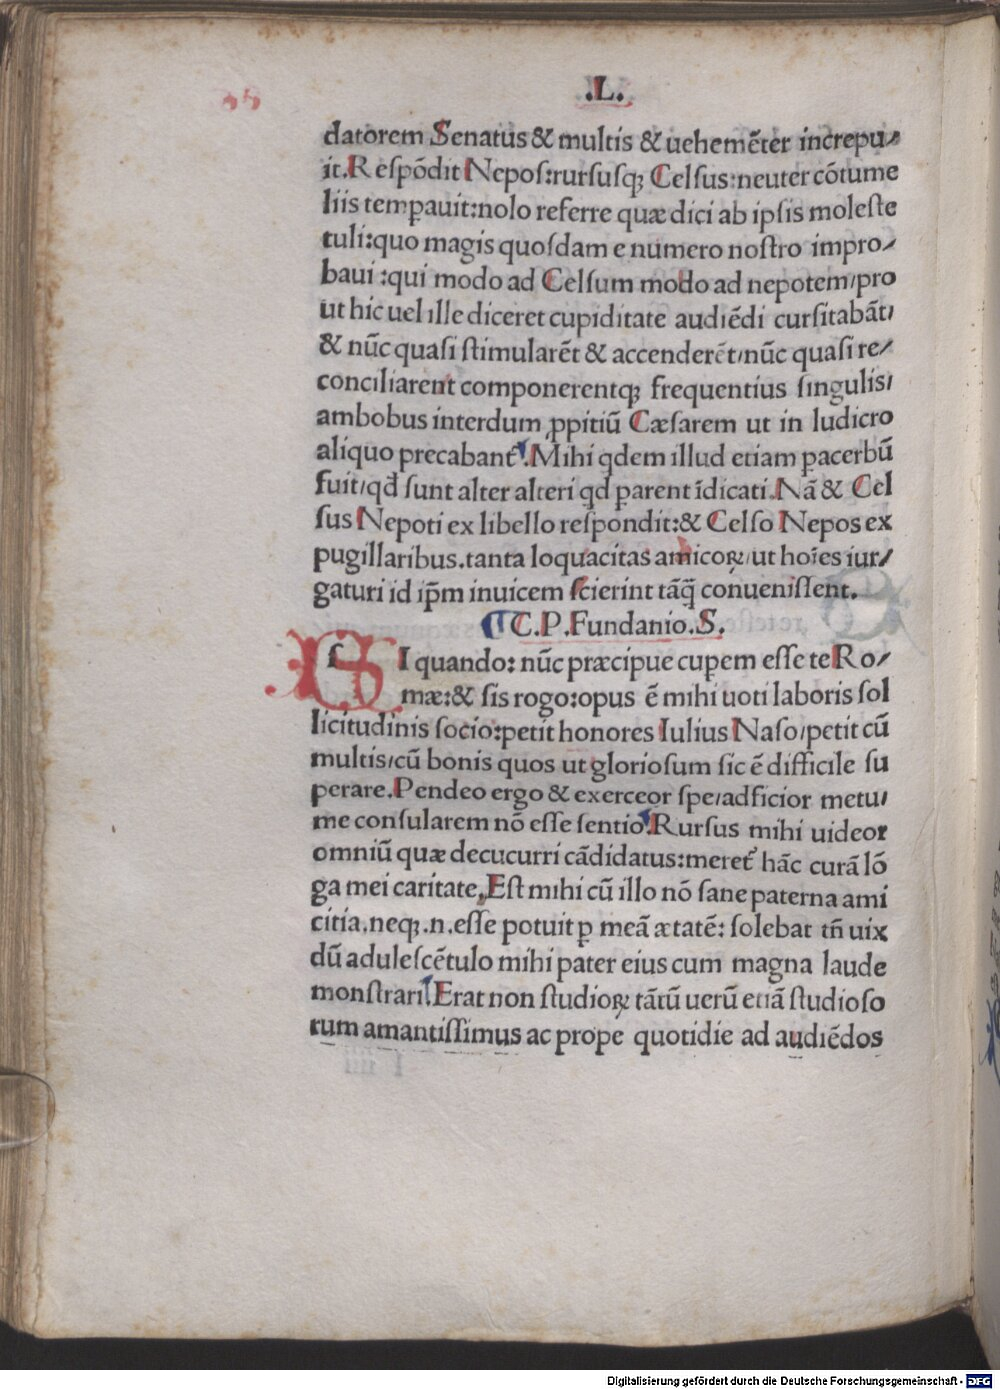 .L.
datorem Senatus & multis & uehemẽter increpu⸗
it.Reſpõdit Nepos:rurſuſq; Celſus:neuter cõtume
liis temꝑauit:nolo referre quæ dici ab ipſis moleſte
tuli:quo magis quoſdam e numero noſtro impro⸗
baui :qui modo ad Celſum modo ad nepotem/pro
ut hic uel ille diceret cupiditate audiẽdi curſitabãt/
& nũc quaſi ſtimularẽt & accenderẽt/nũc quaſi re⸗
conciliarent componerentq; frequentius ſingulis/
ambobus interdum ꝓpitiũ Cæſarem ut in ludicro
aliquo precabant᷑.Mihi qdem illud etiam ꝑacerbũ
fuit/qđ ſunt alter alteri qd ꝑarent ĩdicati.Nã & Cel
ſus Nepoti ex libello reſpondit:& Celſo Nepos ex
pugillaribus.tanta loquacitas amicoꝝ/ut hoĩes iur⸗
gaturi id ip̃m inuicem ſcierint tãq̃ conueniſſent.
C.P.Fundanio.S.
SI quando: nũc præcipue cuperem eſſe te Ro⸗
mæ:& ſis rogo:opus ẽ mihi uoti laboris ſol
licitudinis ſocio:petit honores Iulius Naſo/petit cũ
multis/cũ bonis quos ut glorioſum ſic ẽ difficile ſu
perare.Pendeo ergo & exerceor ſpe/adficior metu/
me conſularem nõ eſſe ſentio.Rurſus mihi uideor
omniũ quæ decucurri cãdidatus:meret᷑ hãc curã lõ
ga mei caritate.Eſt mihi cũ illo nõ ſane paterna ami
citia.neq;.n.eſſe potuit ꝑ meã ætatẽ: ſolebat tñ uix
dũ aduleſcẽtulo mihi pater eius cum magna laude
monſtrari.Erat non ſtudioꝝ tãtũ uerũ etiã ſtudioſo
rum amantiſſimus ac prope quotidie ad audiẽdos
Digitalisierung gefördert durch die Deutsche Forschungsgemeinschaft - DFG